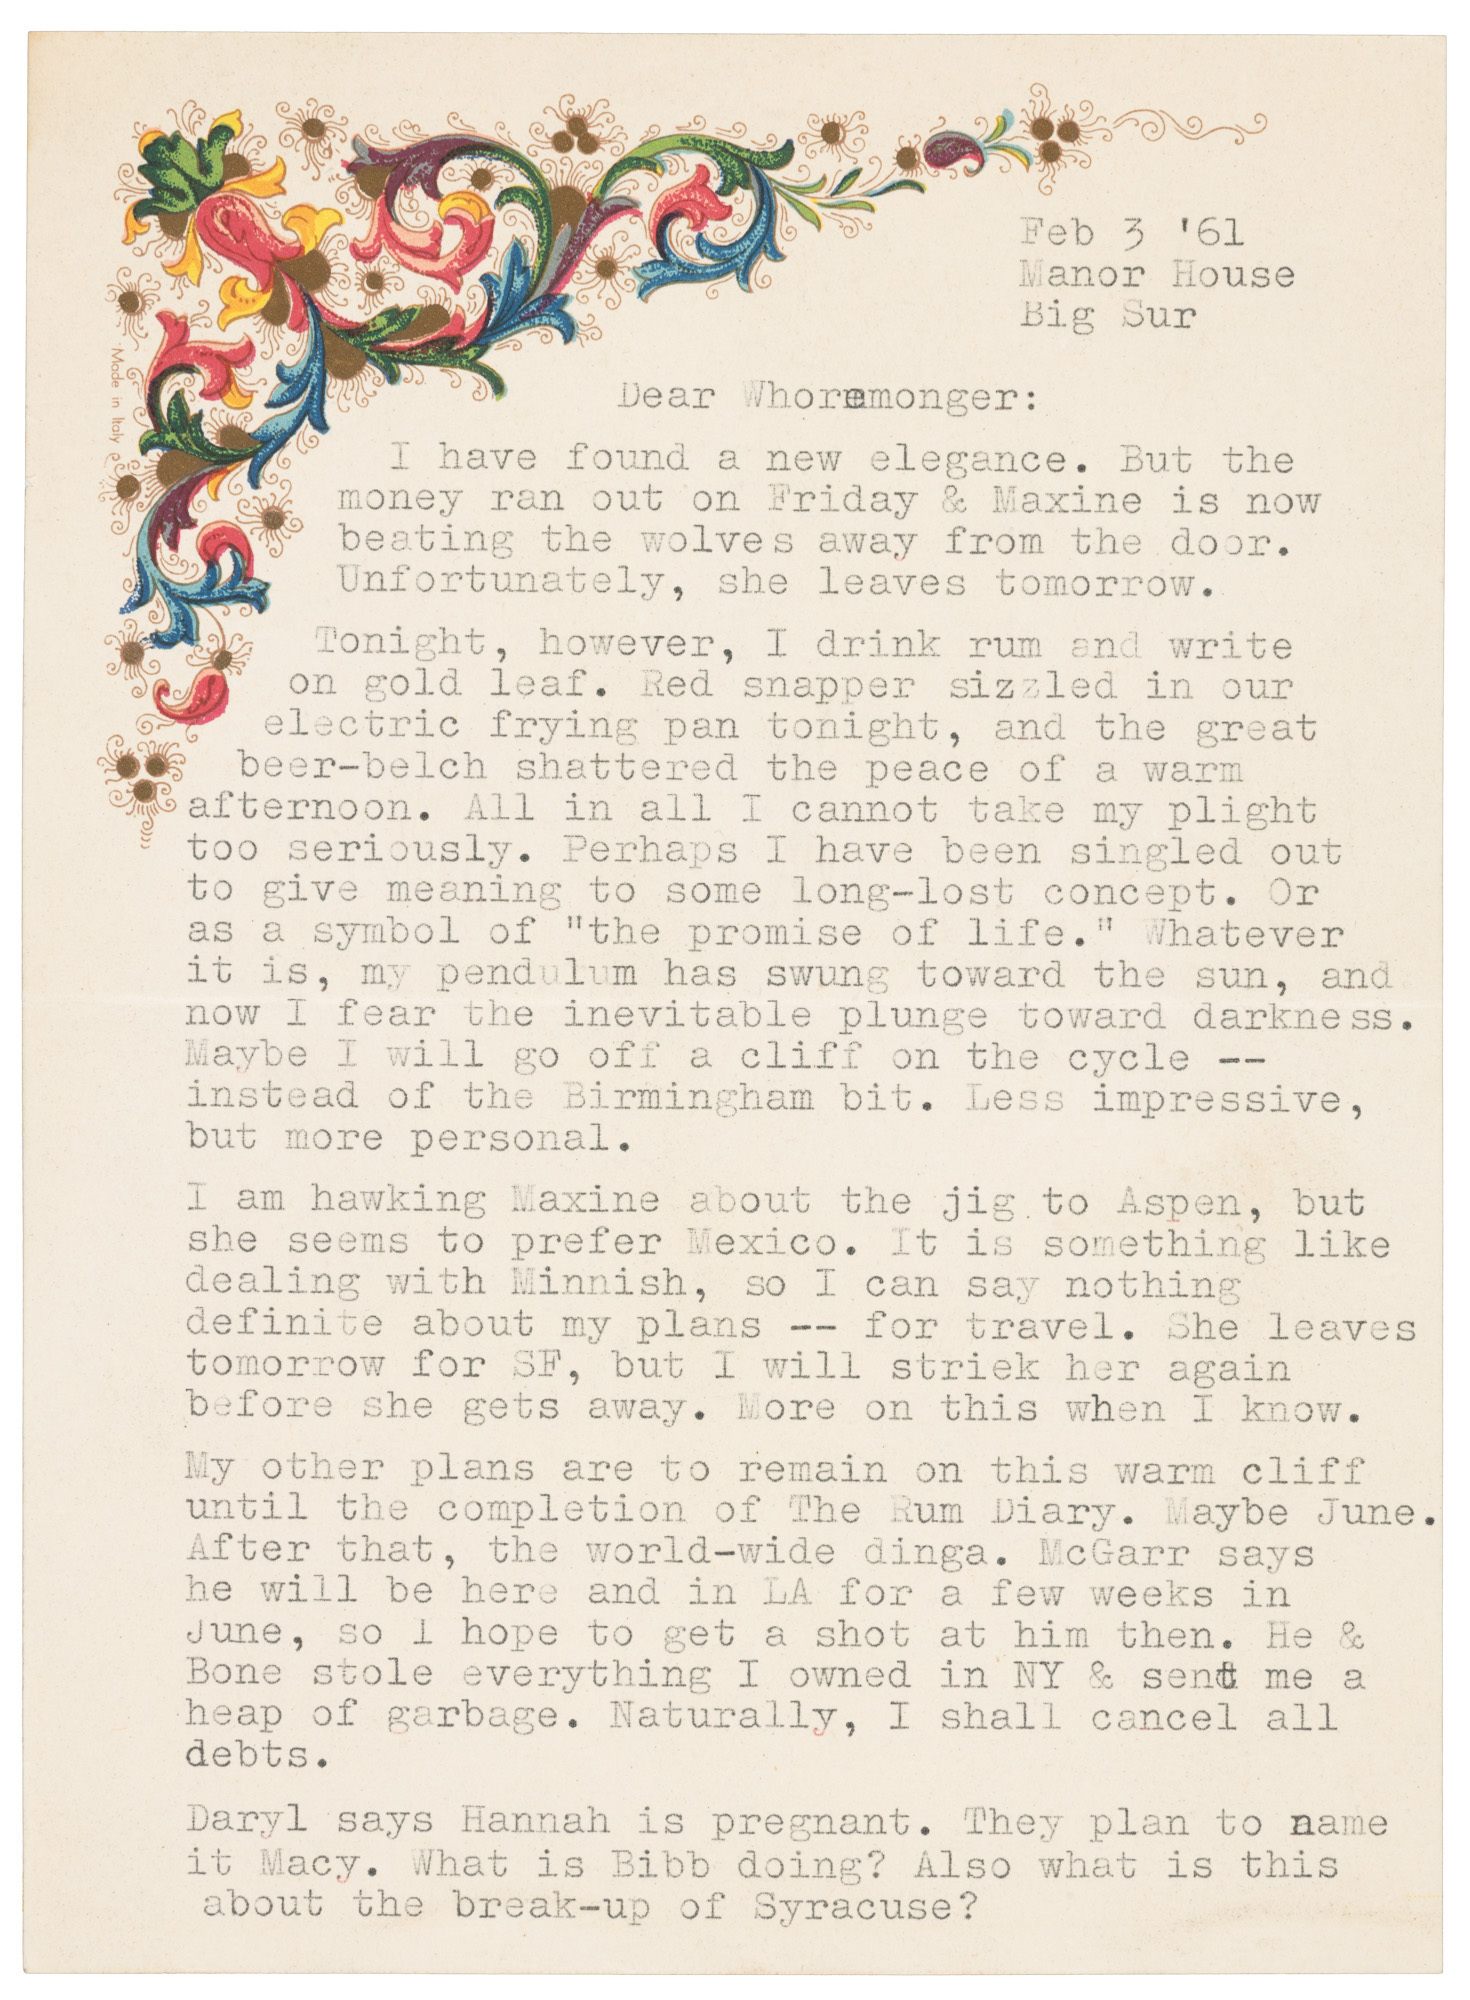 Feb 3 '61
Manor House
Big Sur
Made in Italy
Dear Whoremonger:
I have found a new elegance. But the
money ran out on Friday & Maxine is now
beating the wolves away from the door.
Unfortunately, she leaves tomorrow.
Tonight, however, I drink rum and write
on gold leaf. Red snapper sizzled in our
electric frying pan tonight, and the great
beer-belch shattered the peace of a warm
afternoon. All in all I cannot take my plight
too seriously. Perhaps I have been singled out
to give meaning to some long-lost concept. Or
as a symbol of "the promise of life." Whatever
it is, my pendulum has swung toward the sun, and
now I fear the inevitable plunge toward darkness.
Maybe I will go off a cliff on the cycle --
instead of the Birmingham bit. Less impressive,
but more personal.
I am hawking Maxine about the jig to Aspen, but
she seems to prefer Mexico. It is something like
dealing with Minnish, so I can say nothing
definite about my plans -- for travel. She leaves
tomorrow for SF, but I will striek her again
before she gets away. More on this when I know.
My other plans are to remain on this warm cliff
until the completion of The Rum Diary. Maybe June.
After that, the world-wide dinga. McGarr says
he will be here and in LA for a few weeks in
June, so I hope to get a shot at him then. He &
Bone stole everything I owned in NY & sent me a
heap of garbage. Naturally, I shall cancel all
debts.
Daryl says Hannah is pregnant. They plan to name
it Macy. What is Bibb doing? Also what is this
about the break-up of Syracuse?